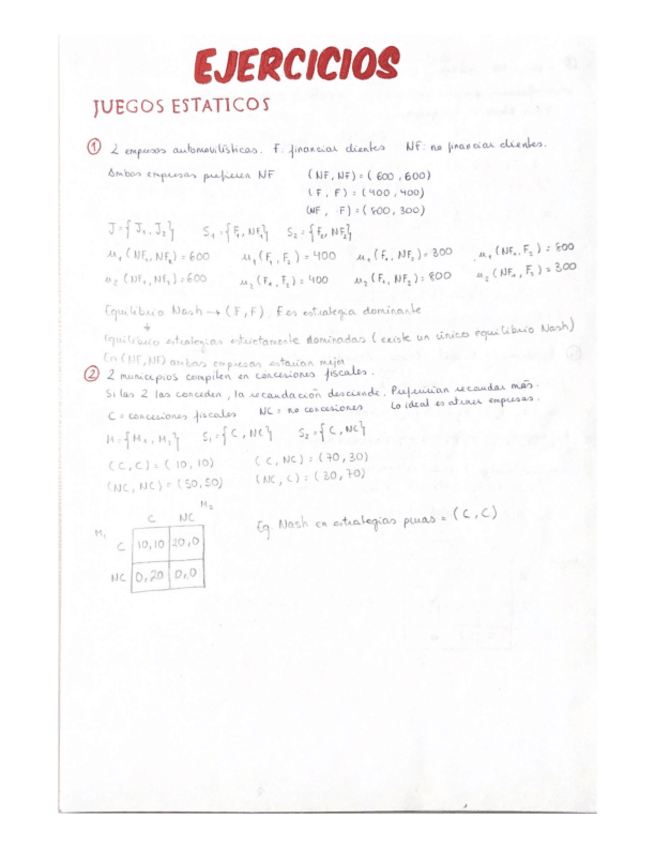 EJERCICIOS
JUEGOS ESTATICOS
① 2 empresas automovilísticas. F: financiar clientes NF: no financiar clientes.
Ambas empresas prefieren NF (NF, NF) = (600, 600)
(F, F) = (400, 400)
(NF, F) = (800, 300)
J = {J₁, J₂} S₁ = {F₁, NF₁} S₂ = {F₂, NF₂}
u₁ (NF₁, NF₂) = 600 u₁ (F₁, F₂) = 400 u₁ (F₁, NF₂) = 300 u₁ (NF₁, F₂) = 800
u₂ (NF₁, NF₂) = 600 u₂ (F₁, F₂) = 400 u₂ (F₁, NF₂) = 800 u₂ (NF₁, F₂) = 300
Equilibrio Nash → (F, F). F es estrategia dominante
↓
Equilibrio estrategias estrictamente dominadas (existe un único equilibrio Nash)
En (NF, NF) ambas empresas estarían mejor
② 2 municipios compiten en concesiones fiscales.
Si las 2 las conceden, la recaudación desciende. Preferirían recaudar más.
C = concesiones fiscales NC = no concesiones Lo ideal es atraer empresas.
M = {M₁, M₂} S₁ = {C, NC} S₂ = {C, NC}
(C, C) = (10, 10) (C, NC) = (70, 30)
(NC, NC) = (50, 50) (NC, C) = (30, 70)
M₂
C NC
M₁ C 10,10 20,0
NC 0,20 0,0
Eq. Nash en estrategias puras = (C, C)